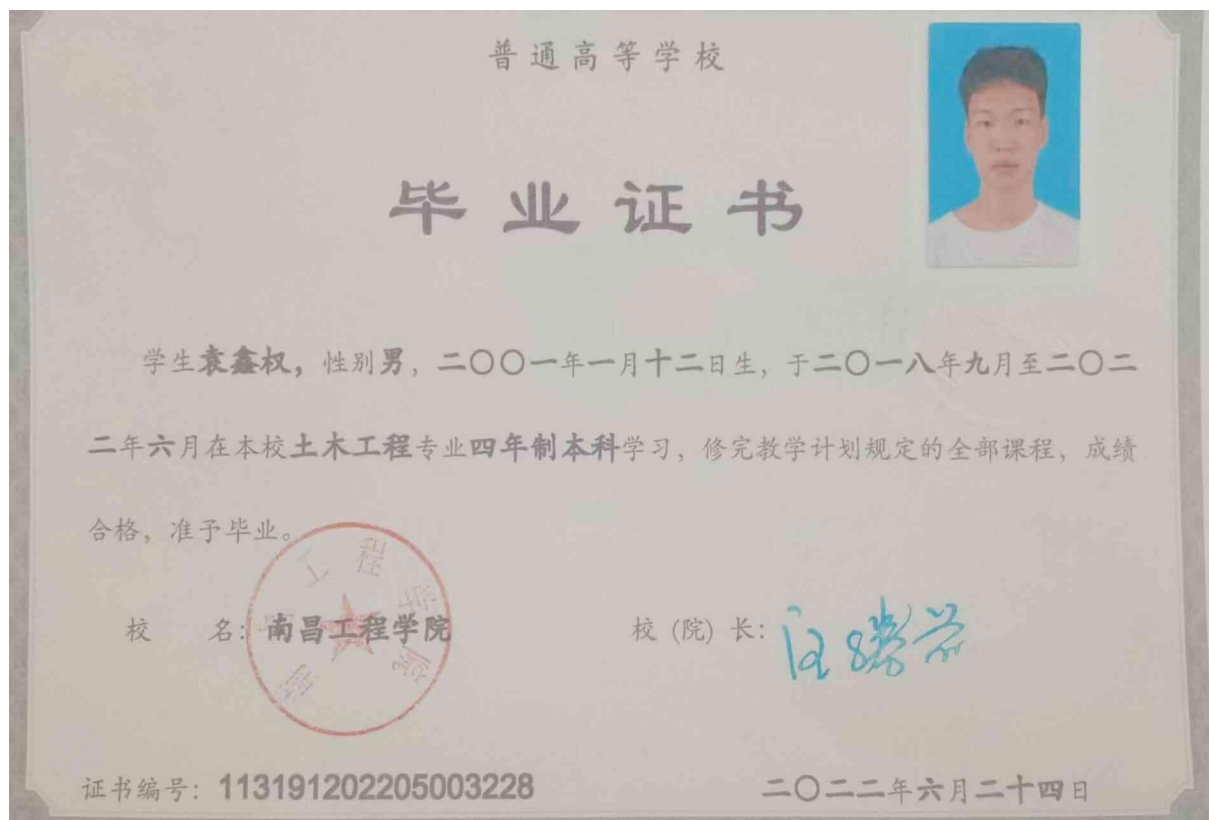 普通高等学校
毕业证书
学生袁鑫权，性别男，二〇〇一年一月十二日生，于二〇一八年九月至二〇二
二年六月在本校土木工程专业四年制本科学习，修完教学计划规定的全部课程，成绩
合格，准予毕业。
工程学院
校 名：南昌工程学院
校（院）长：
证书编号：113191202205003228
二〇二二年六月二十四日